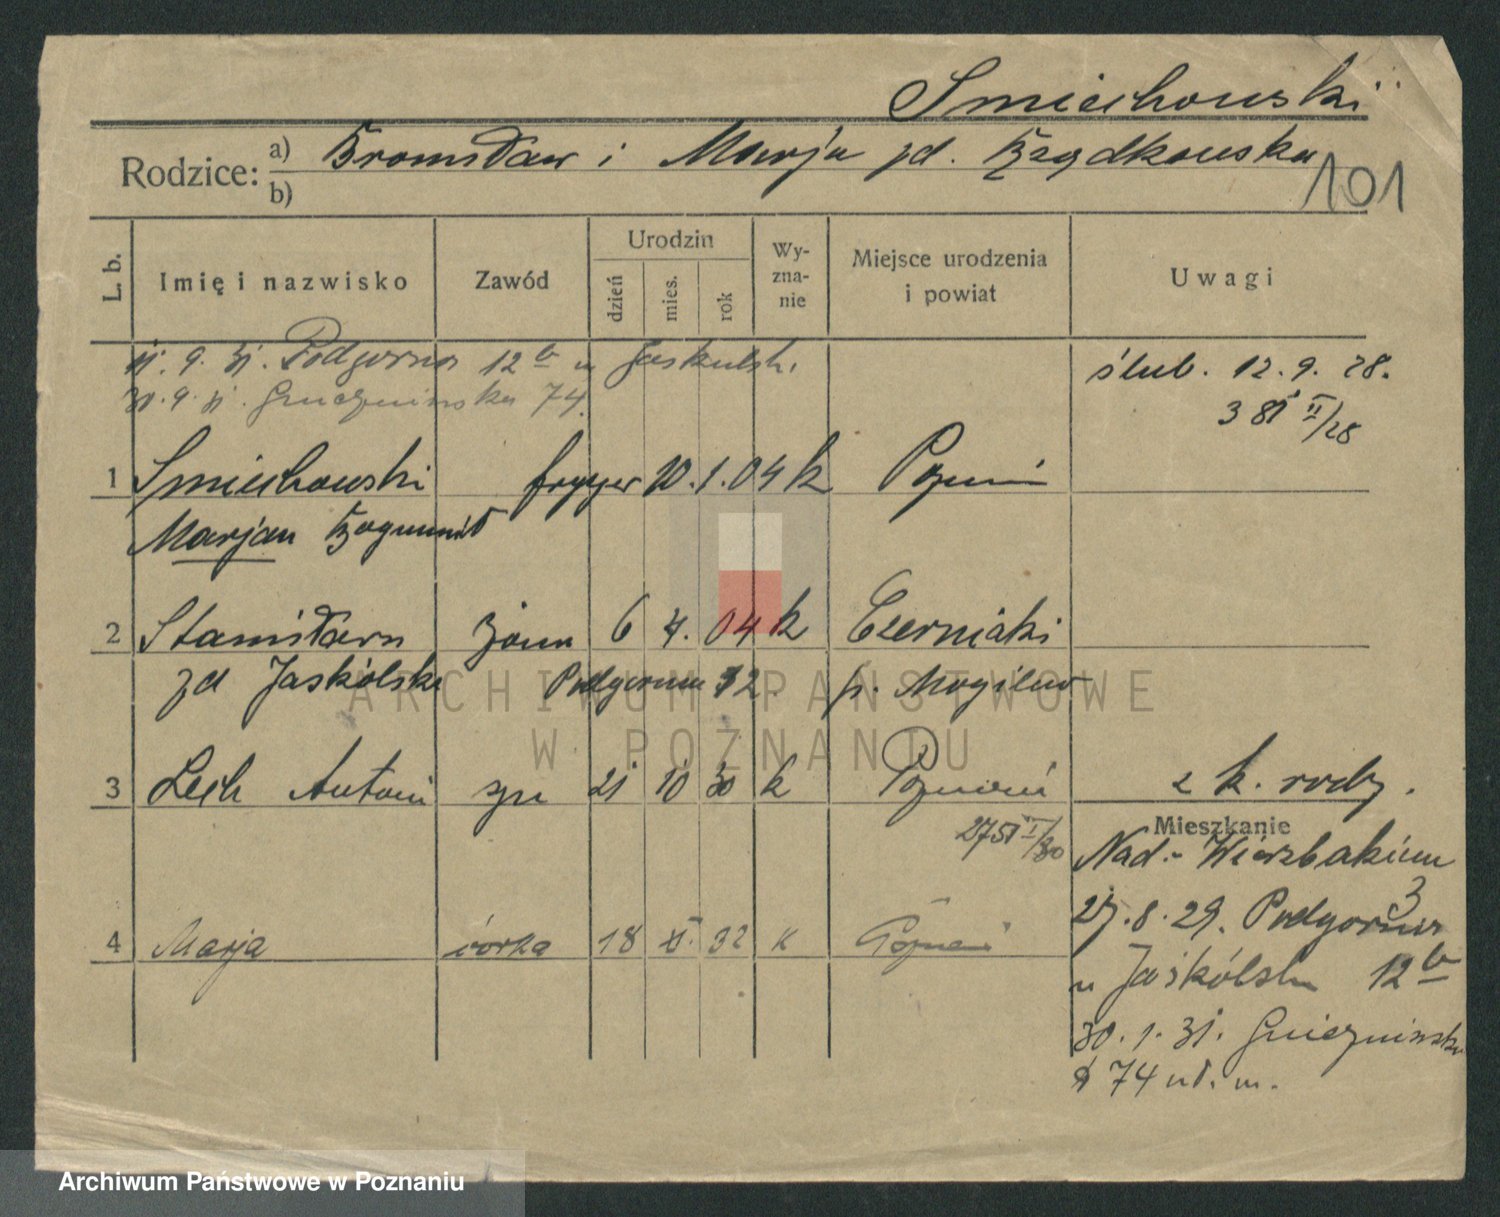 Smiechowski
Rodzice: a) Bronisław i Marja zd. Brzydkowska
b)
101
L. b. Imię i nazwisko Zawód Urodzin dzień mies. rok Wy-zna-nie Miejsce urodzenia i powiat Uwagi
9. 31. Podgorna 12 b u Jaskulski
30. 9. 31. Gniezninska 74.
ślub. 12. 9. 28.
381 II/28
1 Smiechowski fryzjer 10. 1. 04 k Poznań
Marjan Bogumił
2 Stanisława żona 6 4. 04 k Czerniaki
zd Jaskólska Podgorna 12 p. Mogilno
3 Lech Antoni syn 21 10 30 k Poznań z k. rodz.
2751 I/30
Mieszkanie
Nad-Wierzbakiem 3
27. 8. 29. Podgorna
u Jaskólski 12 b
4 Marja córka 18 32 k Poznań
30. 1. 31. Gnieznińska
74 m.
ARCHIWUM PAŃSTWOWE
W POZNANIU
Archiwum Państwowe w Poznaniu